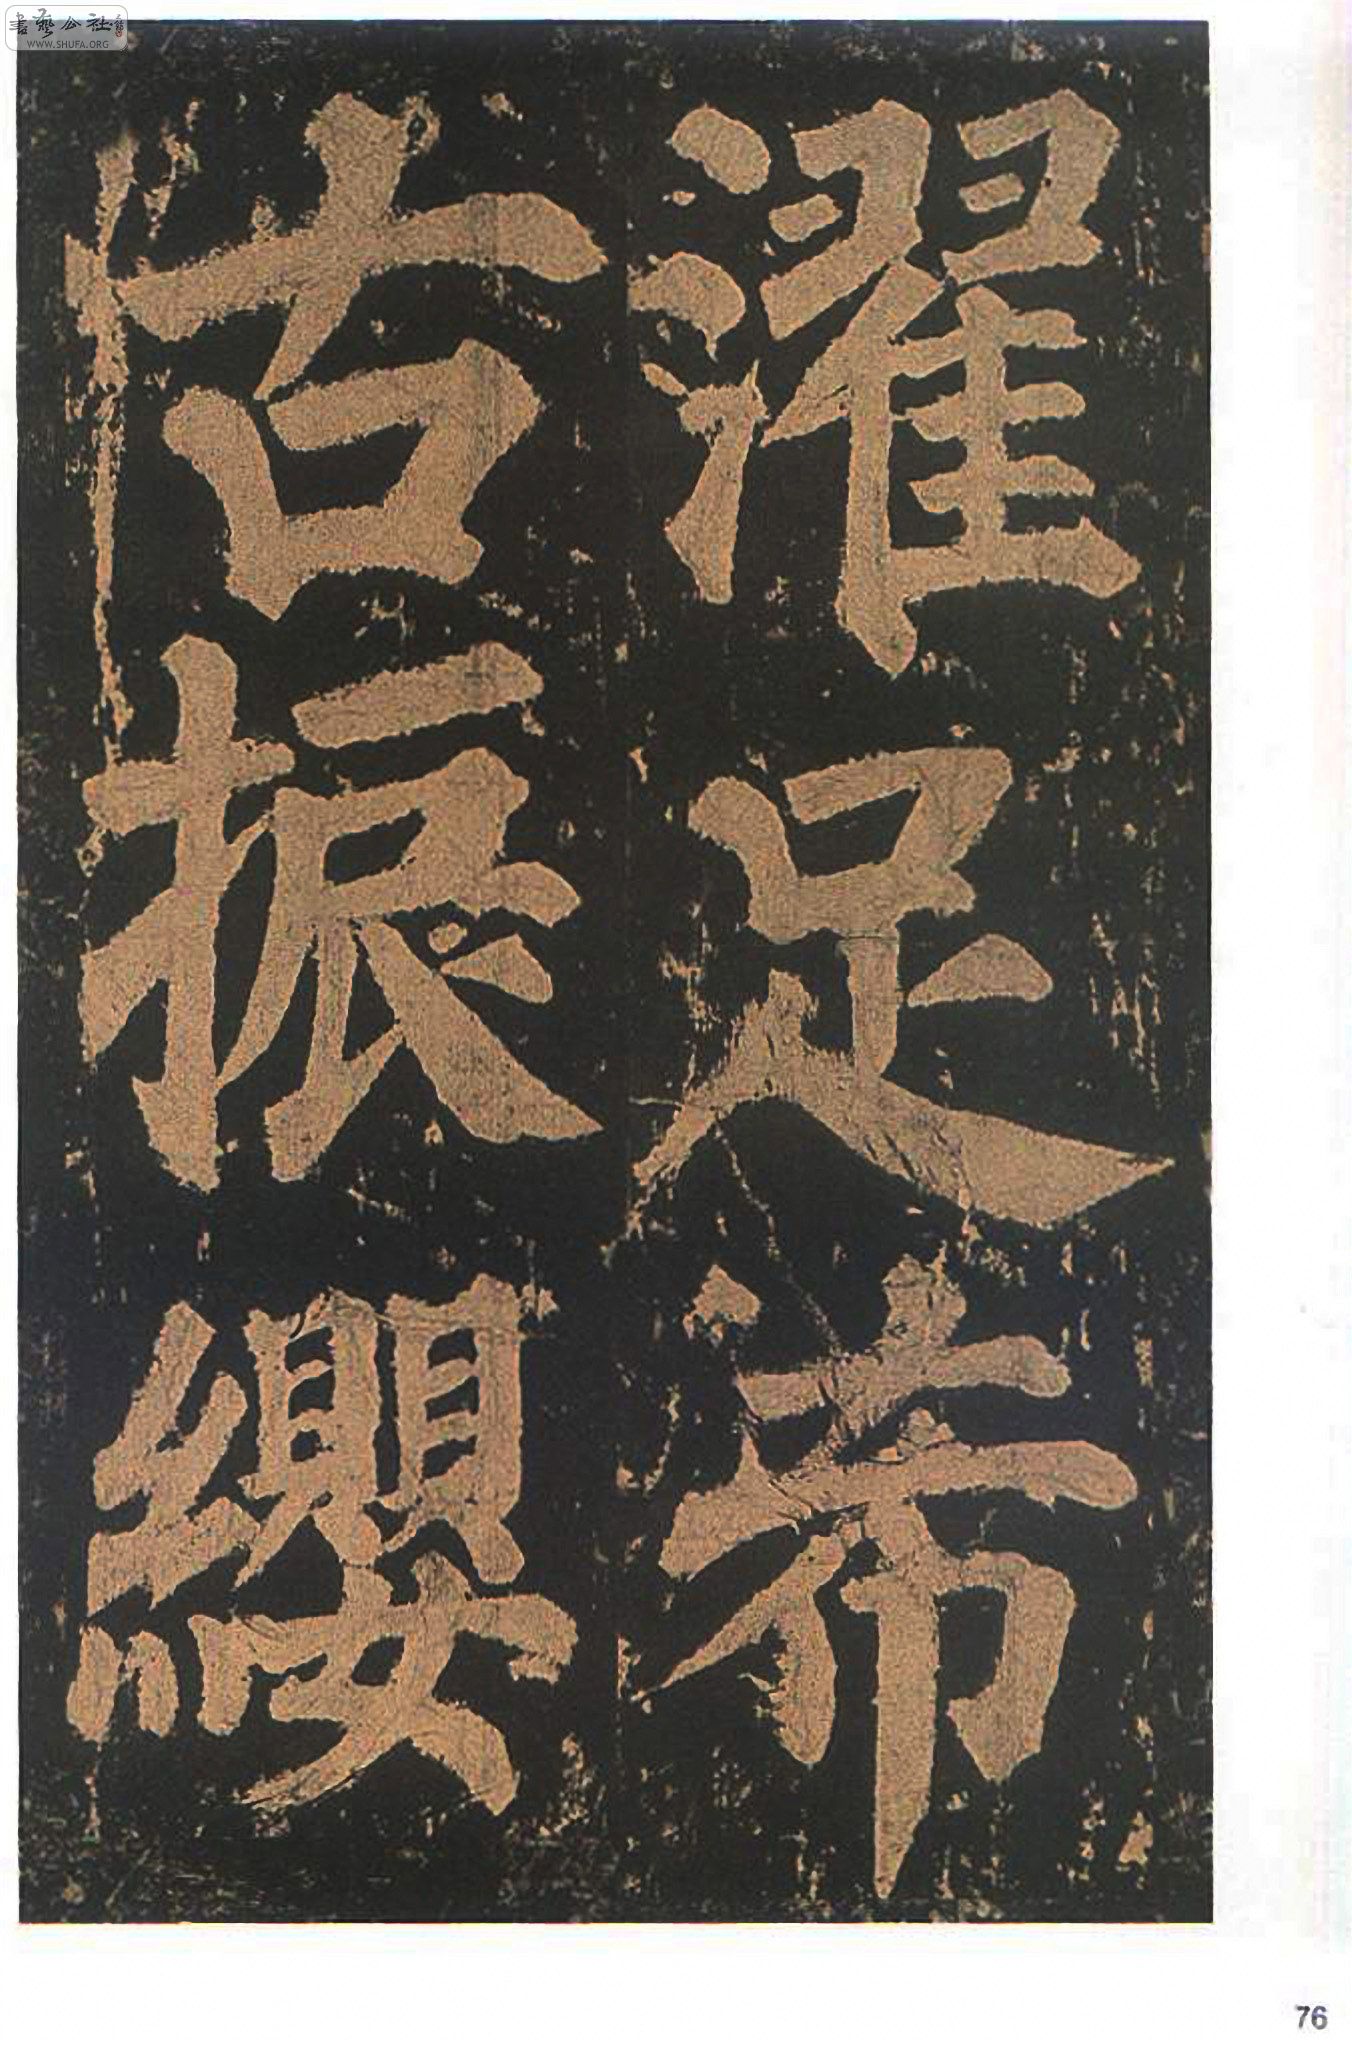 書藝公社
WWW.SHUFA.ORG
濯足希
古振纓
76